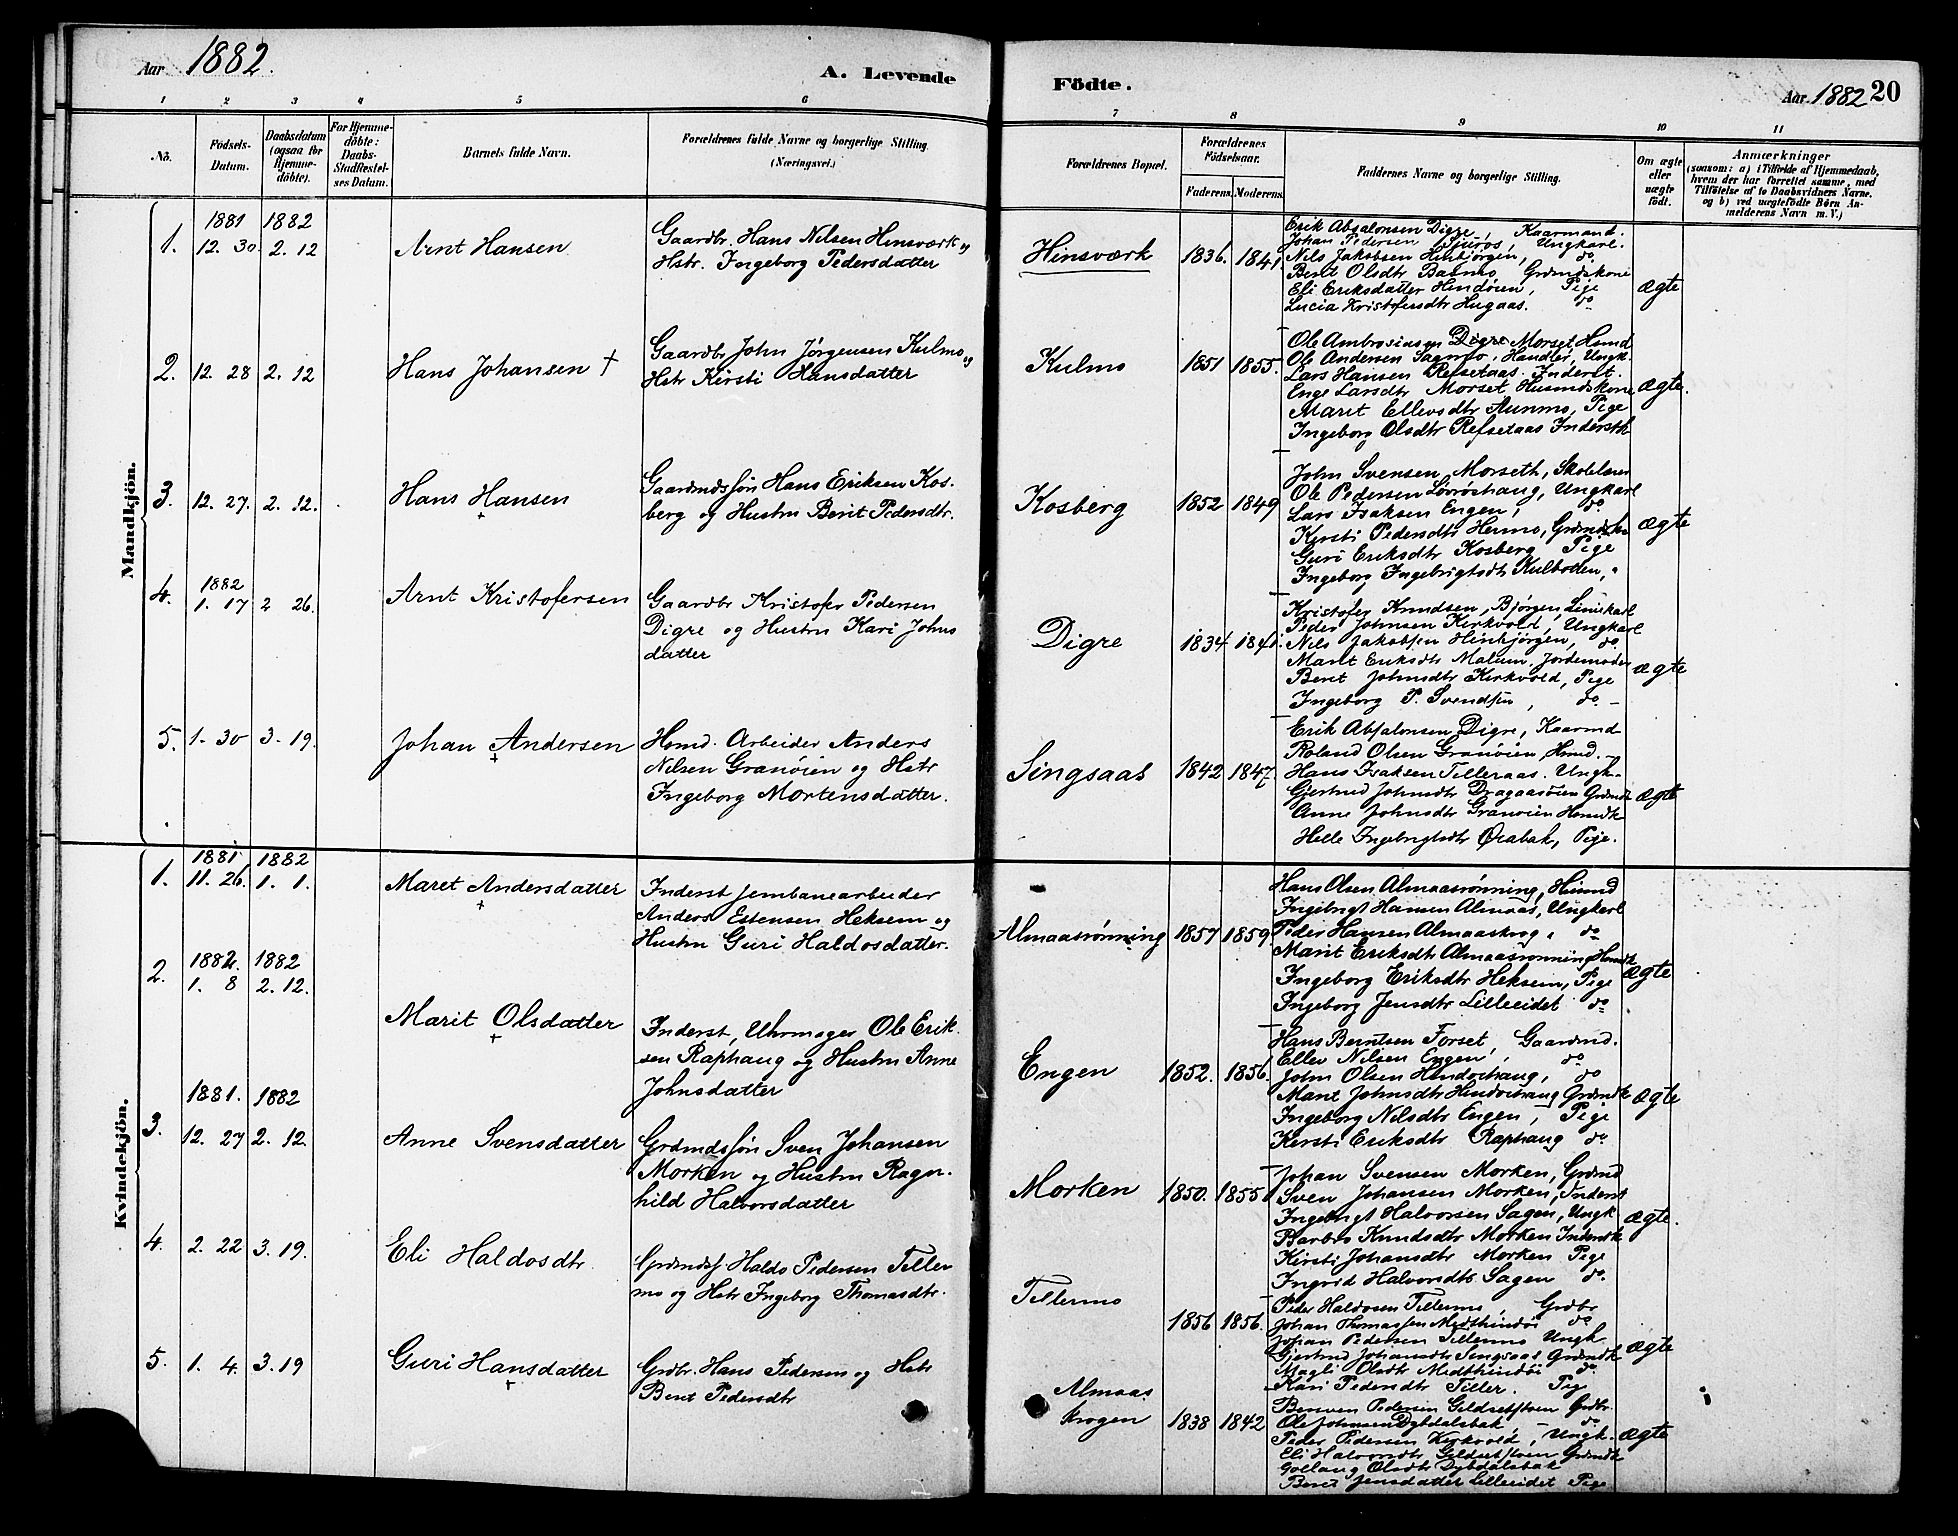 Aar 1882.
A. Levende
Födte.
Aar 1882 20
1 2 3 4 5 6 7 8 9 10 11
No.
Födsels-
Datum.
Daabsdatum
(ogsaa for
Hjemme-
döbte).
For Hjemme-
döbte:
Daabs-
Stadfæstel-
ses Datum.
Barnets fulde Navn.
Forældrenes fulde Navne og borgerlige Stilling.
(Næringsvei.)
Forældrenes Bopæl.
Forældrenes
Födselsaar.
Faderens. Moderens.
Faddernes Navne og borgerlige Stilling.
Om ægte
eller
uægte
födt.
Anmærkninger
(saasom: a) i Tilfælde af Hjemmedaab,
hvem der har forrettet samme, med
Tilföielse af to Daabsvidners Navne,
og b) ved uægtefödte Börn An-
melderens Navn m. V.)
Mandkjön.
1. 1881 12. 30. 1882 2. 12
Arnt Hansen
Gaardbr. Hans Nilsen Hinsværk og
Hstr. Ingeborg Pedersdatter
Hinsværk
1836. 1841.
Erik Absalonsen Digre, Kaarmand.
Johan Pedersen Ungkarl.
Nils Jakobsen Hinbjørgen, do
Berit Olsdtr Baamo Grdmdskone
Eli Eriksdatter Hindøien, Pige
Lucia Kristofersdtr Hugaas. do
Ægte
2. 12. 28 2. 12
Hans Johansen †
Gaardbr John Jørgensen Kulmo og
Hstr Kirsti Hansdatter
Kulmo
1851 1855.
Ole Ambrosiusen Digre Morset Hsmd
Ole Andersen Sagmo, Handler, Ungk.
Lars Hansen Refsetaas. Inderst.
Enge Larsdtr Morset Husmdskone
Marit Ellevsdtr Aunmo, Pige
Ingeborg Olsdtr Refsetaas Inderstk
Ægte.
3. 12. 27. 2. 12.
Hans Hansen
Gaardmdssøn Hans Eriksen Kos-
berg og Hustru Berit Pedersdtr.
Kosberg
1852 1849
John Svensen Morseth, Skolelærer
Ole Pedersen Løvrøshaug, Ungkarl
Lars Isaksen Engen, do
Kirsti Pedersdtr Henmo, Grdmdsk
Guri Eriksdtr Kosberg Pige
Ingeborg Ingebrigtsdtr Kulbotten, "
Ægte
4. 1882 1. 17 2 26.
Arnt Kristofersen
Gaardbr Kristofer Pedersen
Digre og Hustru Kari Johns
datter
Digre
1834 1841.
Kristofer Knudsen, Bjørgen,
Peder Johnsen Kirkvold, Ungkarl
Nils Jakobsen Hinbjørgen, do
Marit Eriksdtr Malum. Jordemoder
Berit Johnsdtr Kirkvold, Pige
Ingeborg P. Svendsen, do
Ægte
5. 1. 30 3. 19.
Johan Andersen
Hsmd. Arbeider Anders
Nilsen Granøien og Hstr
Ingeborg Mortensdatter.
Singsaas
1842 1847.
Erik Absalonsen Digre, Kaarmd
Roland Olsen Granøien Hsmd.
Hans Isaksen Tilleraas. Ungk.
Gjertrud Johnsdtr Dragaasøien Grdmdk
Anne Johnsdtr Granøien Hsmdk
Helle Ingebrigtsdtr Ørabak, Pige.
Ægte
Kvindekjön.
1. 1881 11. 26. 1882 1. 1.
Maret Andersdatter
Inderst Jernbanearbeider
Anders Estensen Heksem og
Hustru Guri Haldosdatter.
Almaasrønning
1857 1859.
Hans Olsen Almaasrønning, Husmd
Ingebrigt Hansen Almaas, Ungkarl
Peder Hansen Almaaskrog, do
Marit Eriksdtr Almaasrønning Hsmdk
Ingeborg Eriksdtr Heksem, Pige
Ingeborg Jensdtr Lilleeidet do
Ægte
2. 1882. 1. 8 1882 2. 12.
Marit Olsdatter
Inderst, Uhrmager Ole Erik-
sen Raphaug og Hustru Anne
Johnsdatter
Engen
1852. 1856.
Hans Berntsen Forset, Gaardmd.
Ellev Nilsen Engen, do
John Olsen Hindoehaug, do
Marit Johnsdtr Grdmdk
Ingeborg Nilsdtr Engen, Pige
Kirsti Eriksdtr Raphaug do
Ægte
3. 1881. 12. 27 1882 2. 12.
Anne Svensdatter
Grdmdssøn Sven Johansen
Morken og Hustru Ragn-
hild Halvorsdatter
Morken
1850. 1855.
Johan Svensen Morken, Grdmd
Sven Johansen Morken, Inderst
Ingebrigt Halvorsen Sagen, Ungk
Barbro Knudsdtr Morken Inderstk
Kirsti Johansdtr Morken Pige
Ingrid Halvorsdtr Sagen do.
Ægte.
4. 2. 22 3. 19.
Eli Haldosdtr.
Grdmdss. Haldo Pedersen Tiller
mo og Hstr Ingeborg Thomasdtr.
Tillermo
1856 1856.
Peder Haldosen Tillermo, Grdbr
Johan Thomassen Midthindøi do
Johan Pedersen Tillermo Ungk
Gjertrud Johansdtr Singsaas Grdmdk
Magli Olsdtr Midthindöi do.
Kari Pedersdtr Tiller. Pig
Ægte
5. 1. 4 3. 19
Guri Hansdatter
Grdbr. Hans Pedersen og Hstr
Berit Pedersdtr
Almaas
krogen
1838 1842
Pedersen Grdbr.
Ole Johnsen Dybdalsbak do
Peder Pedersen Kirkvold, Ungk.
Eli Halvorsdtr Grdmdk
Olsdtr Dybdalsbak
Berit Jensdatter Lilleeidet Pige
Ægte